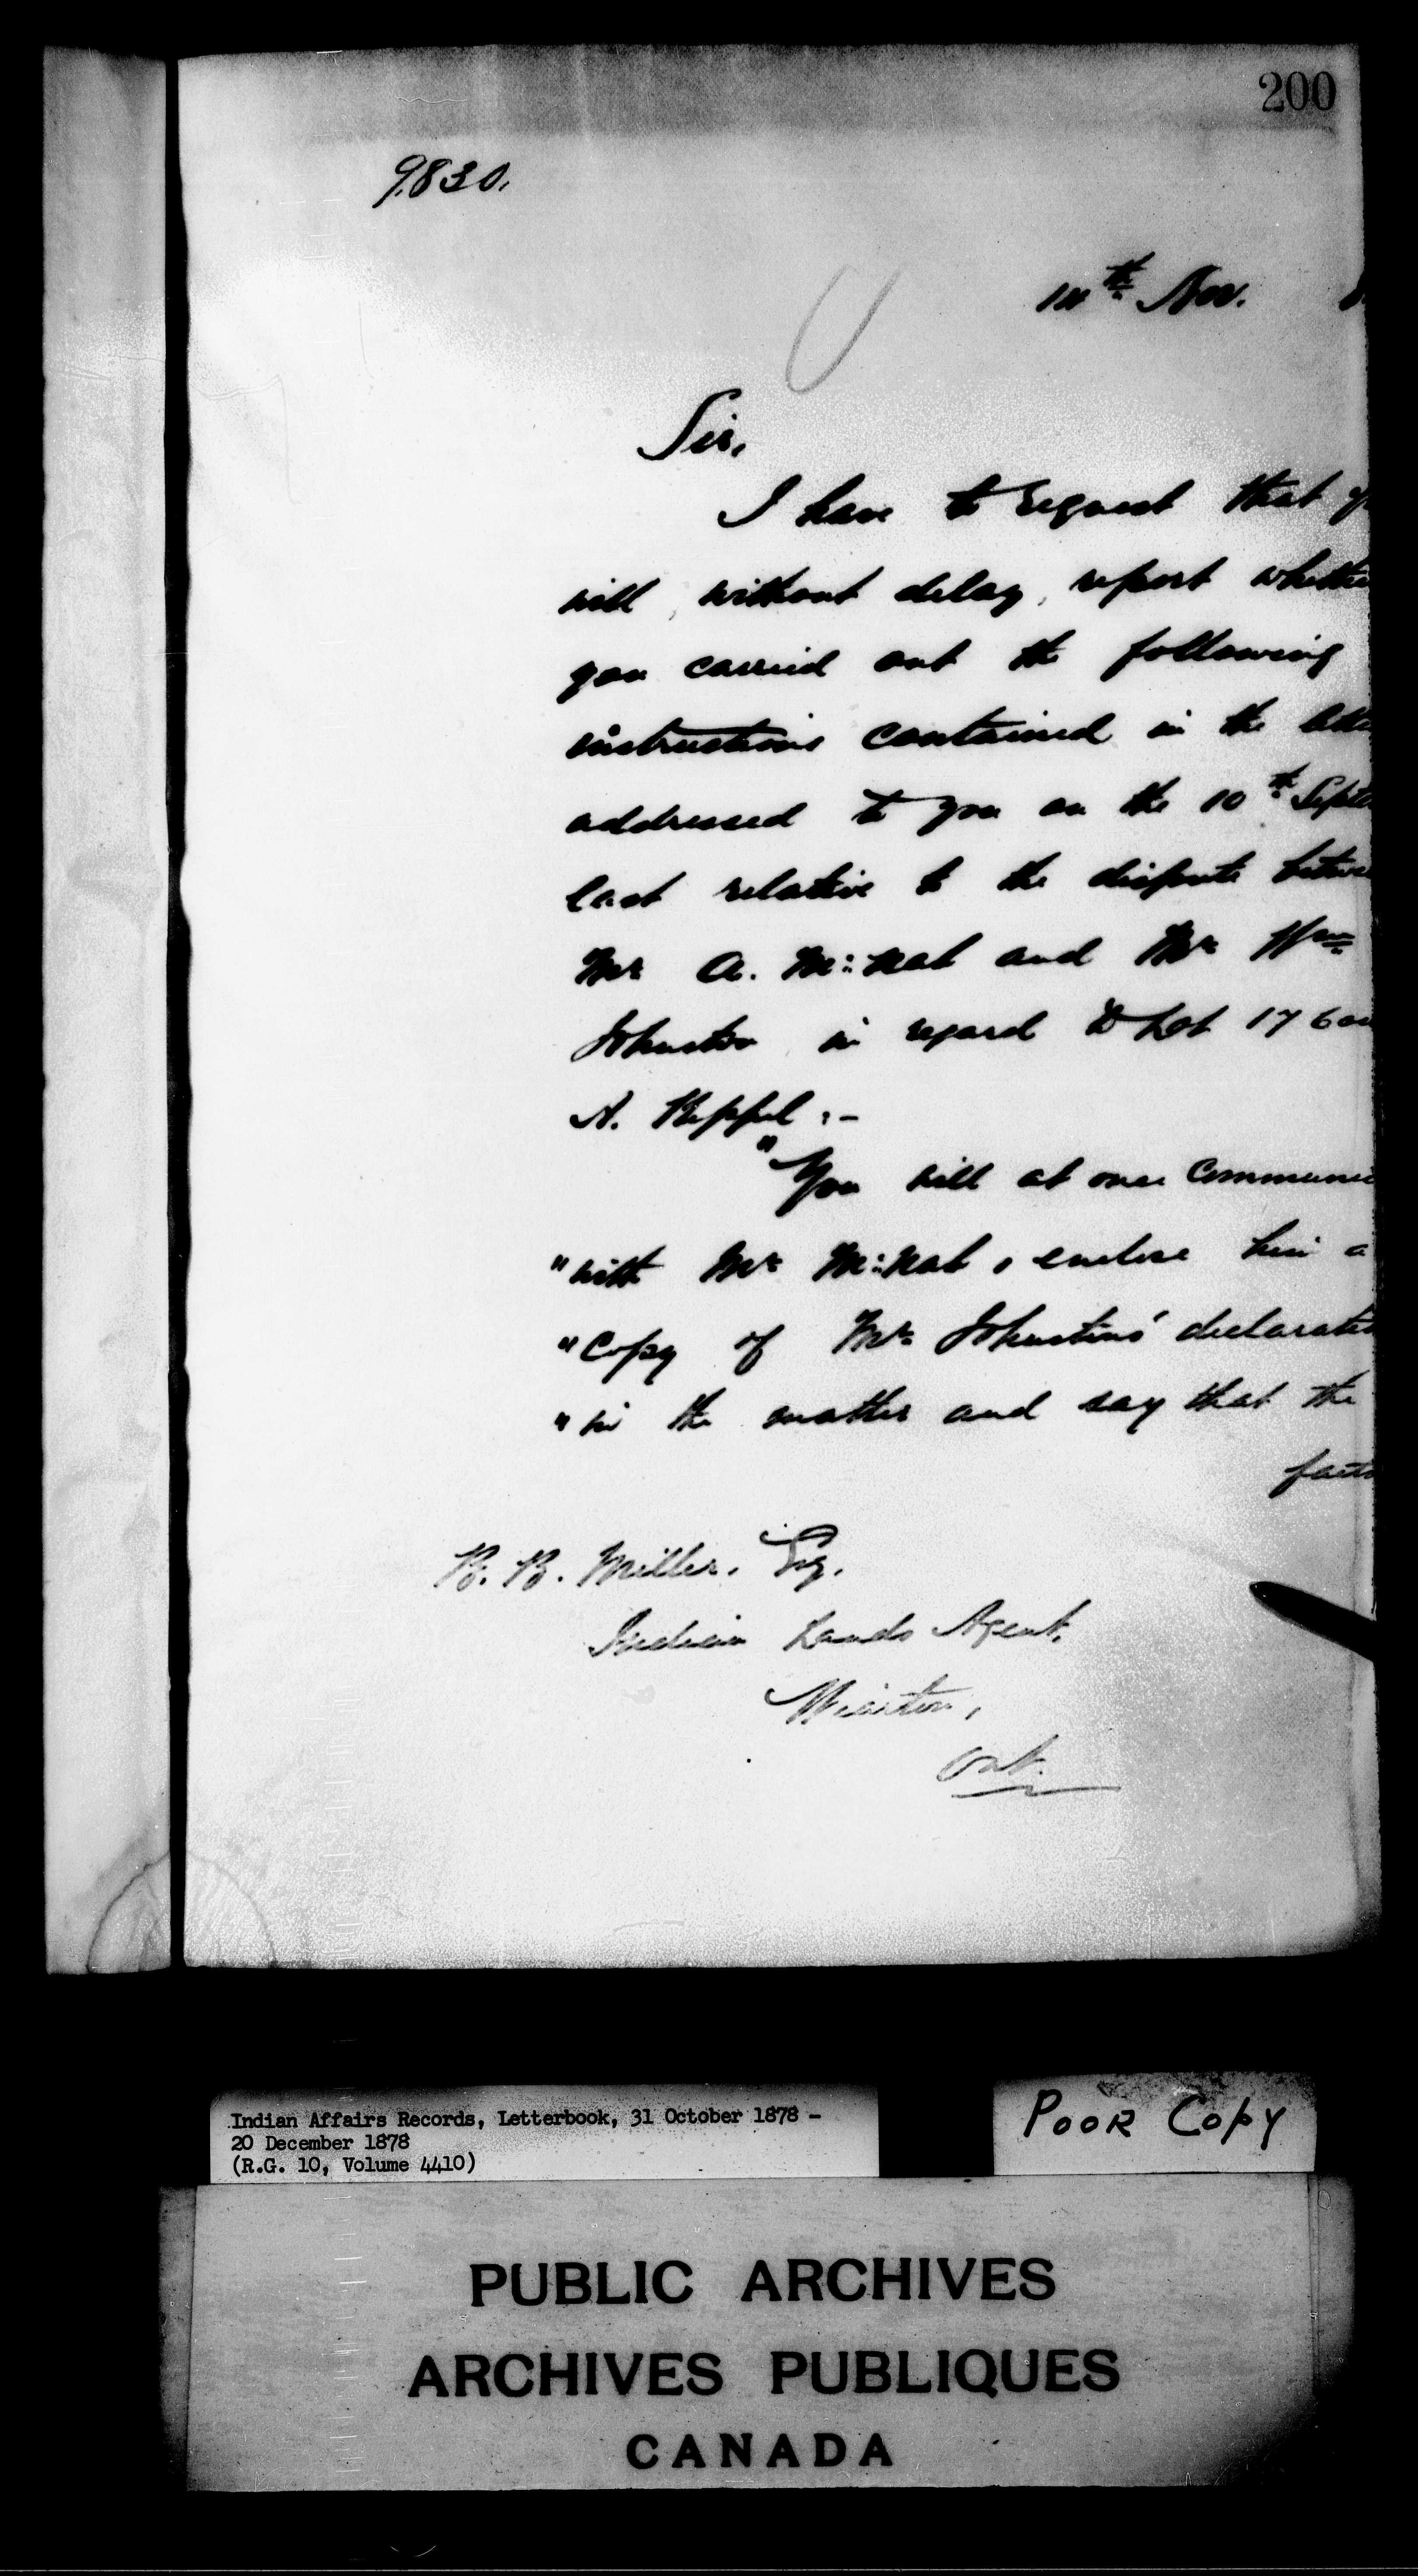 200
9830.
14th Nov.
Sir,
I have to request that
will, without delay, report whethe
you carried out the following
instructions contained in the
addressed to you on the 10th Septe
last relative to the dispute betwe
Mr A. McNab and Mr Wm
Johnston in regard to Lot 17 6 con
A. Keppel :-
"You will at once Communi
"with Mr McNab, enclose him a
"Copy of Mr Johnston's declarati
"in the matter and say that the
facts
B. B. Miller, Esq.
Indian Lands Agent,
Wiarton,
Ont.
Indian Affairs Records, Letterbook, 31 October 1878 -
20 December 1878
(R.G. 10, Volume 4410)
POOR COPY
PUBLIC ARCHIVES
ARCHIVES PUBLIQUES
CANADA